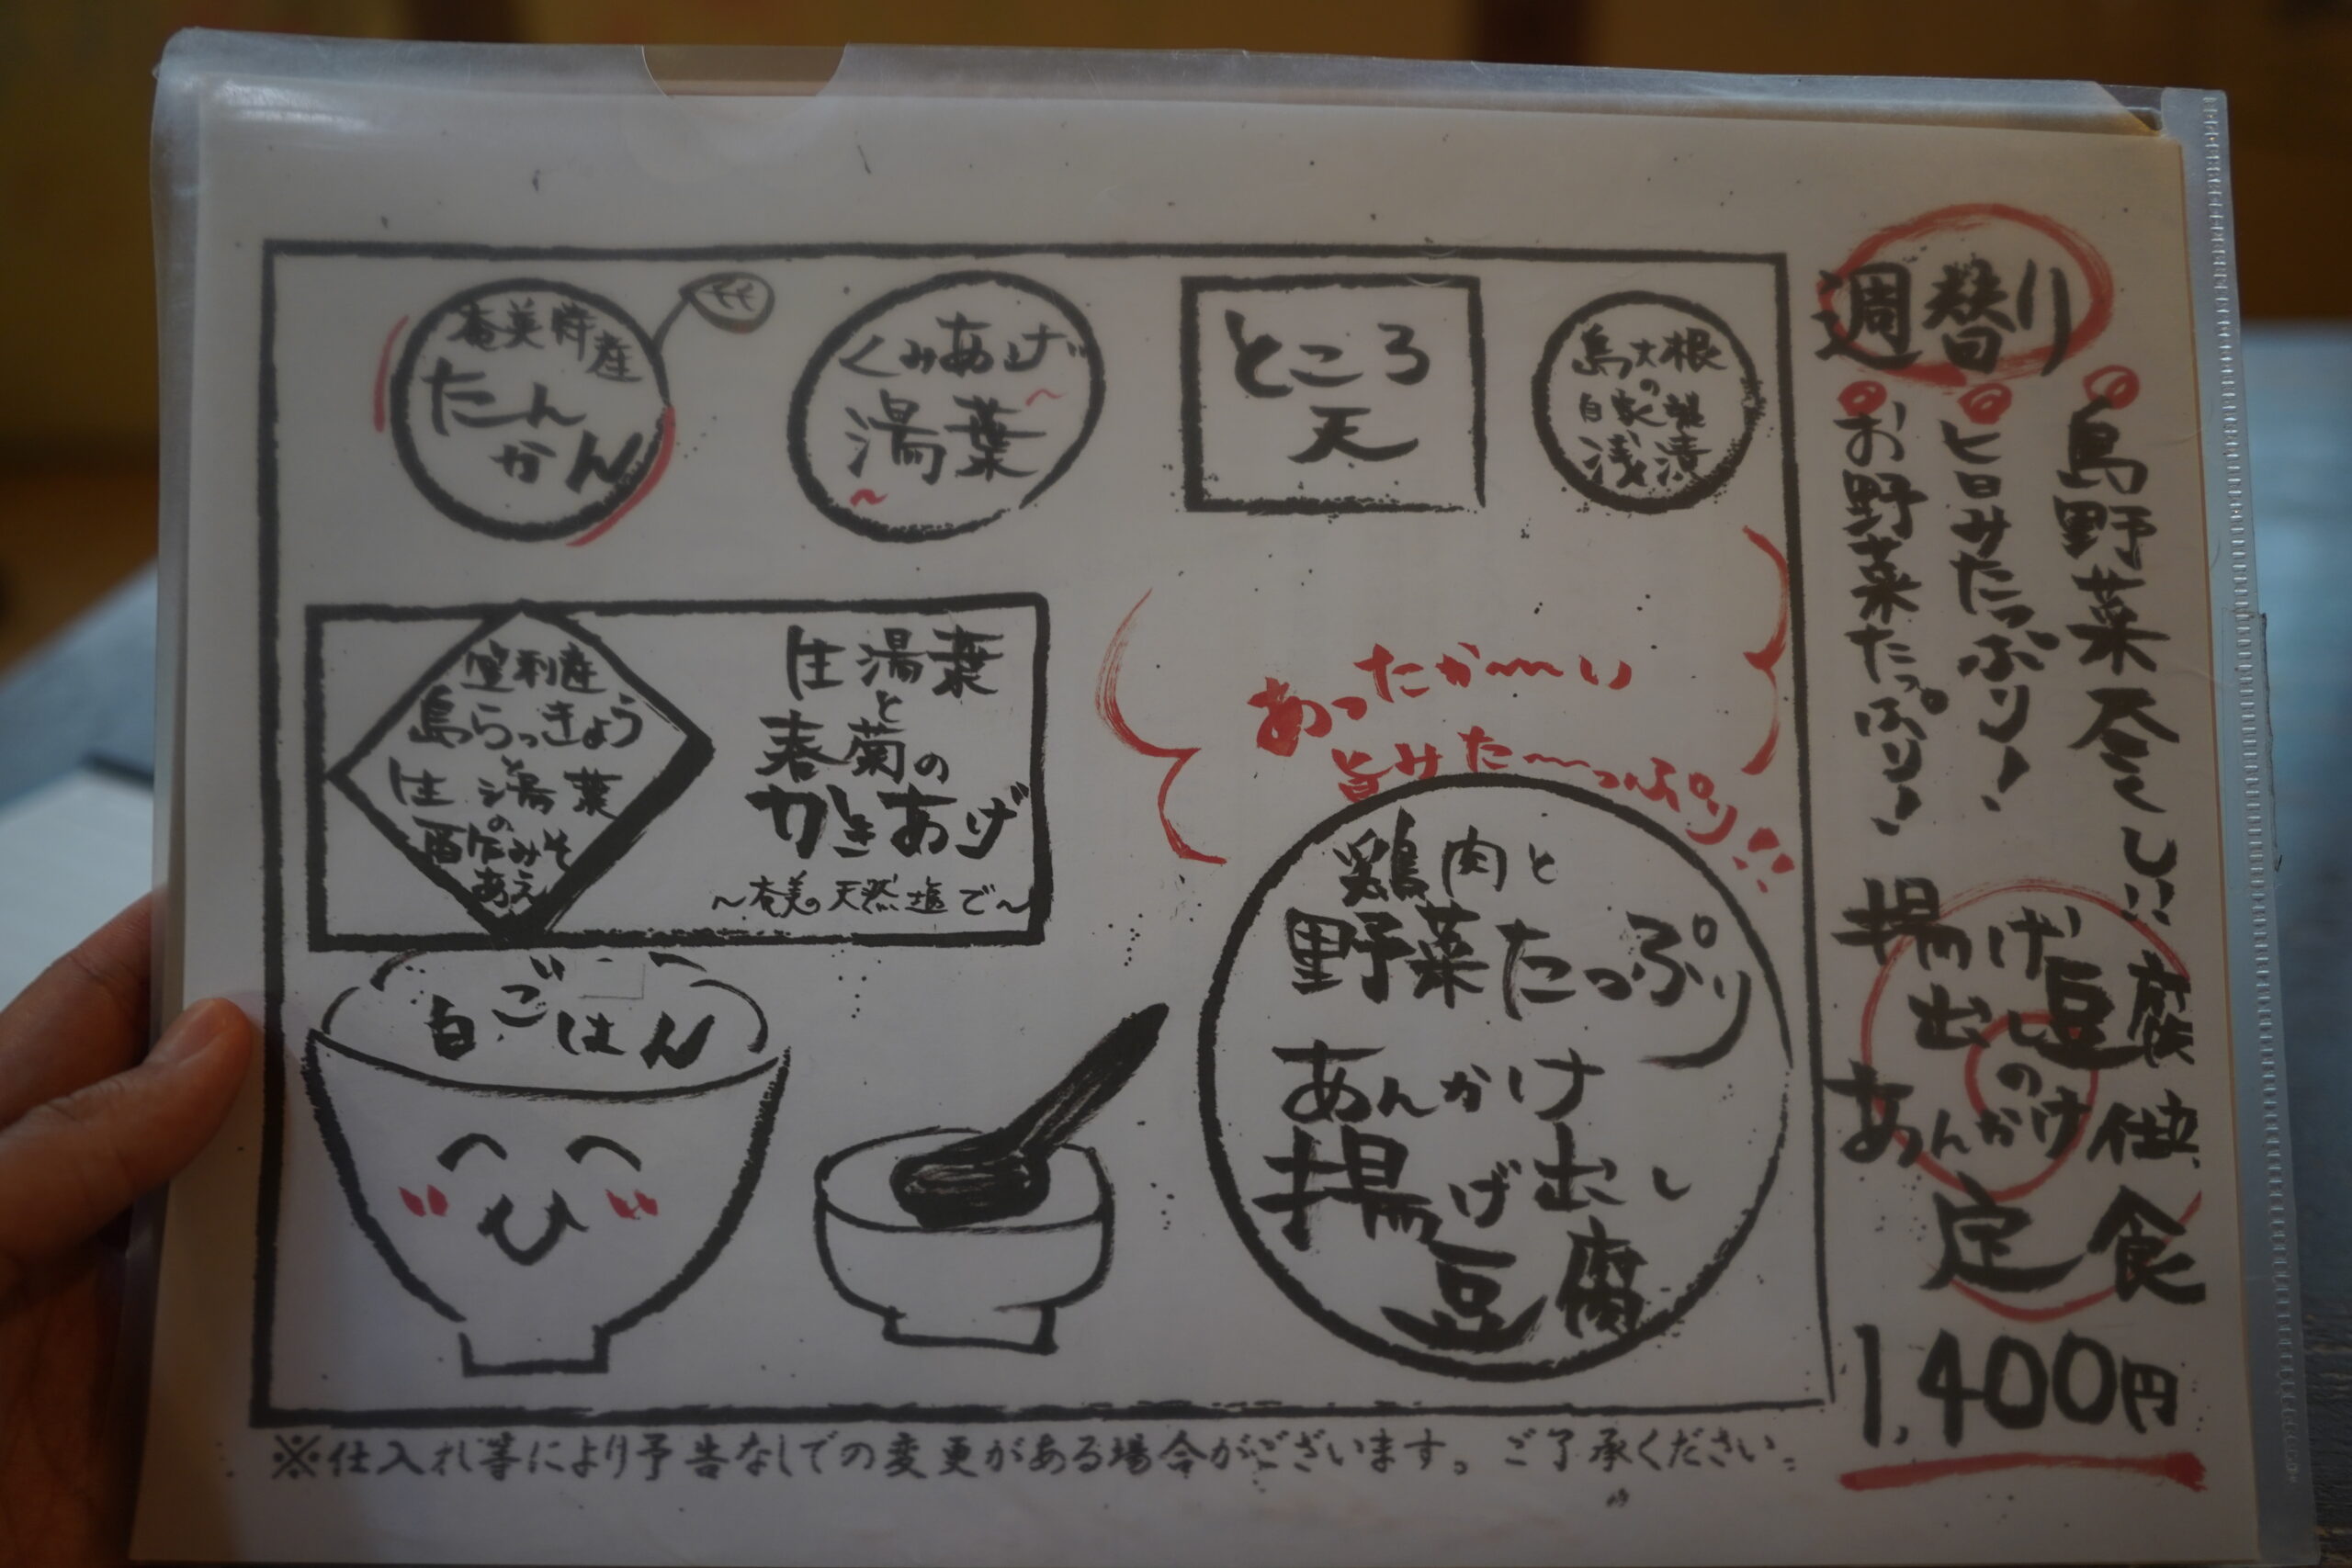 週替り
島野菜尽くし!!
旨みたっぷり!
お野菜たっぷり!
揚げ出し豆腐
のあんかけ仕立
定食
1,400円
奄美特産
たん
かん
くみあげ
湯葉
ところ
天
島大根
の
自家製
浅漬
笠利産
島らっきょう
と
生湯葉
の
酉乍みそ
あえ
生湯葉
と
春菊の
かきあげ
～奄美の天然塩で～
あったか〜〜い
旨みた〜〜っぷり!!
鶏肉と
野菜たっぷり
あんかけ
揚げ出し
豆腐
白ごはん
※仕入れ等により予告なしでの変更がある場合がございます。ご了承ください。